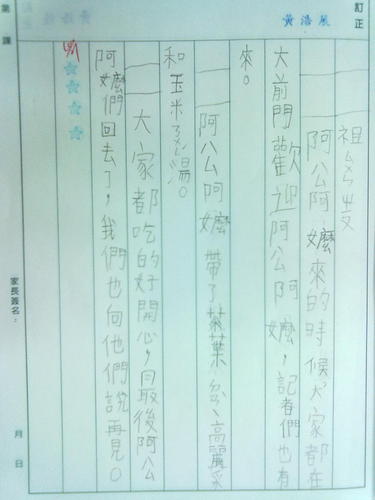 訂正
黃浩展
祖
阿公阿嬤來的時候大家都在
大前門歡迎阿公阿嬤，記者們也有
來。
阿公阿嬤帶了茶葉、高麗菜
和玉米湯。
大家都吃的好開心，最後阿公
阿嬤們回去了，我們也向他們說再見。
第 課
家長簽名：
月 日